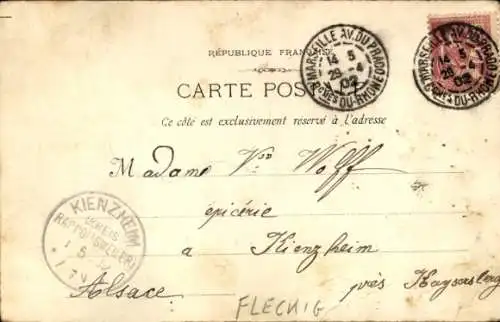 RÉPUBLIQUE FRANÇAISE
CARTE POSTALE
Ce côté est exclusivement réservé à l'adresse
MARSEILLE AV. DU PRADO
14 5
29 -4
02
B. DU-RHONE
MARSEILLE AV. DU PRADO
14 5
29 -4
02
B. DU-RHONE
Madame Vve Wolff
épicérie
à Kienzheim
près Kaysersberg
Alsace
KIENZHEIM
RAPPOLTSWEILER
1 5
FLECKIG